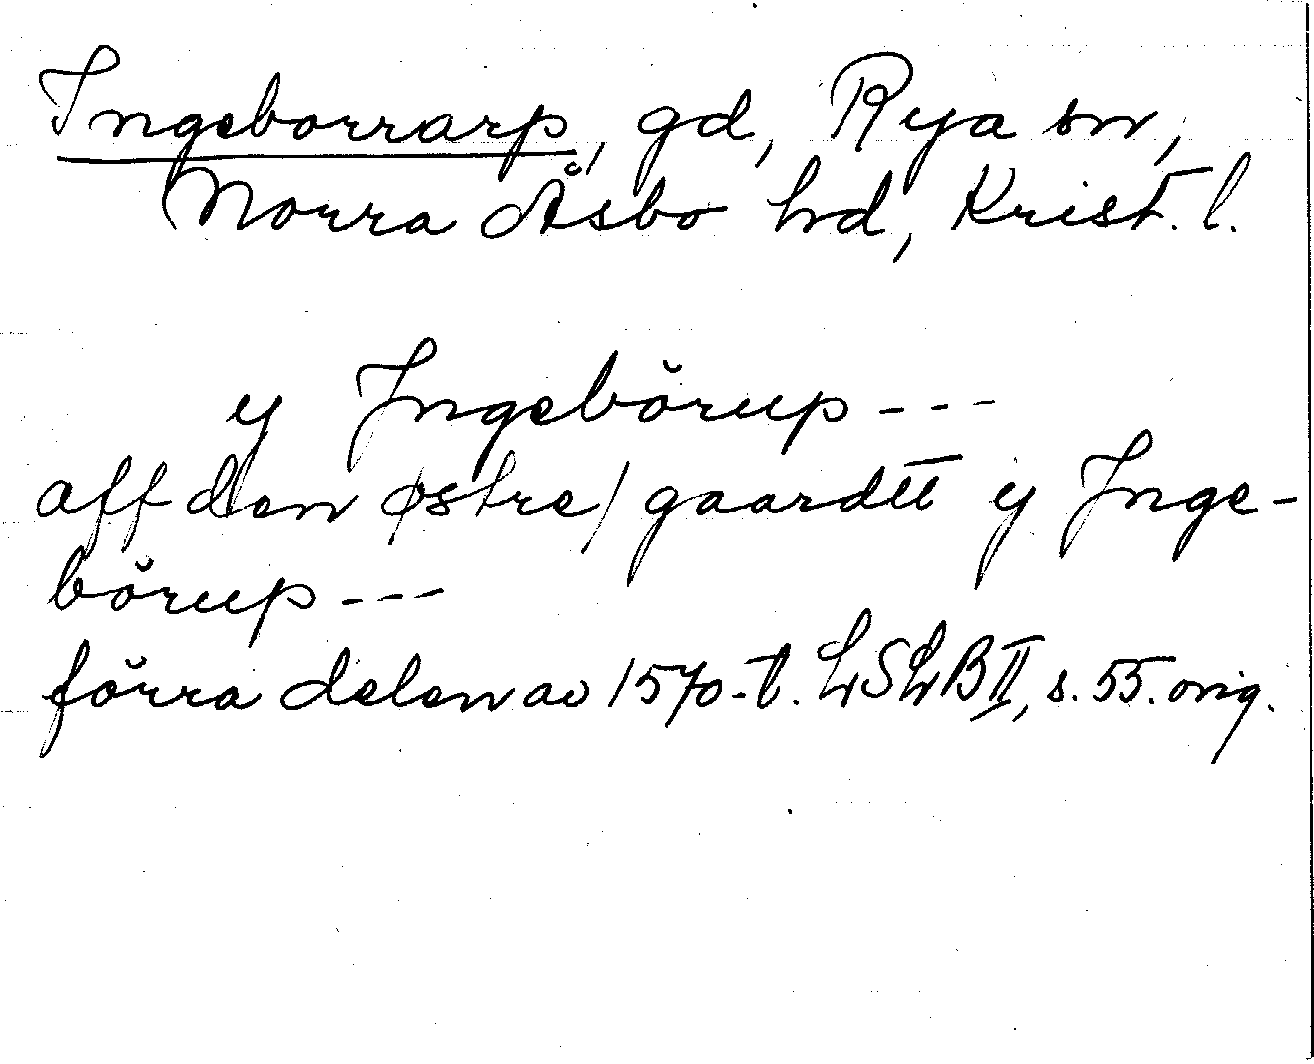 Ingeborrarp, gd, Rya sn,
Norra Åsbo hd, Krist. l.
y Ingebŏrup---
aff den østre/ gaardtt y Inge-
bŏrup---
förra delen av 1570-t. LSLB II, s. 55. orig.